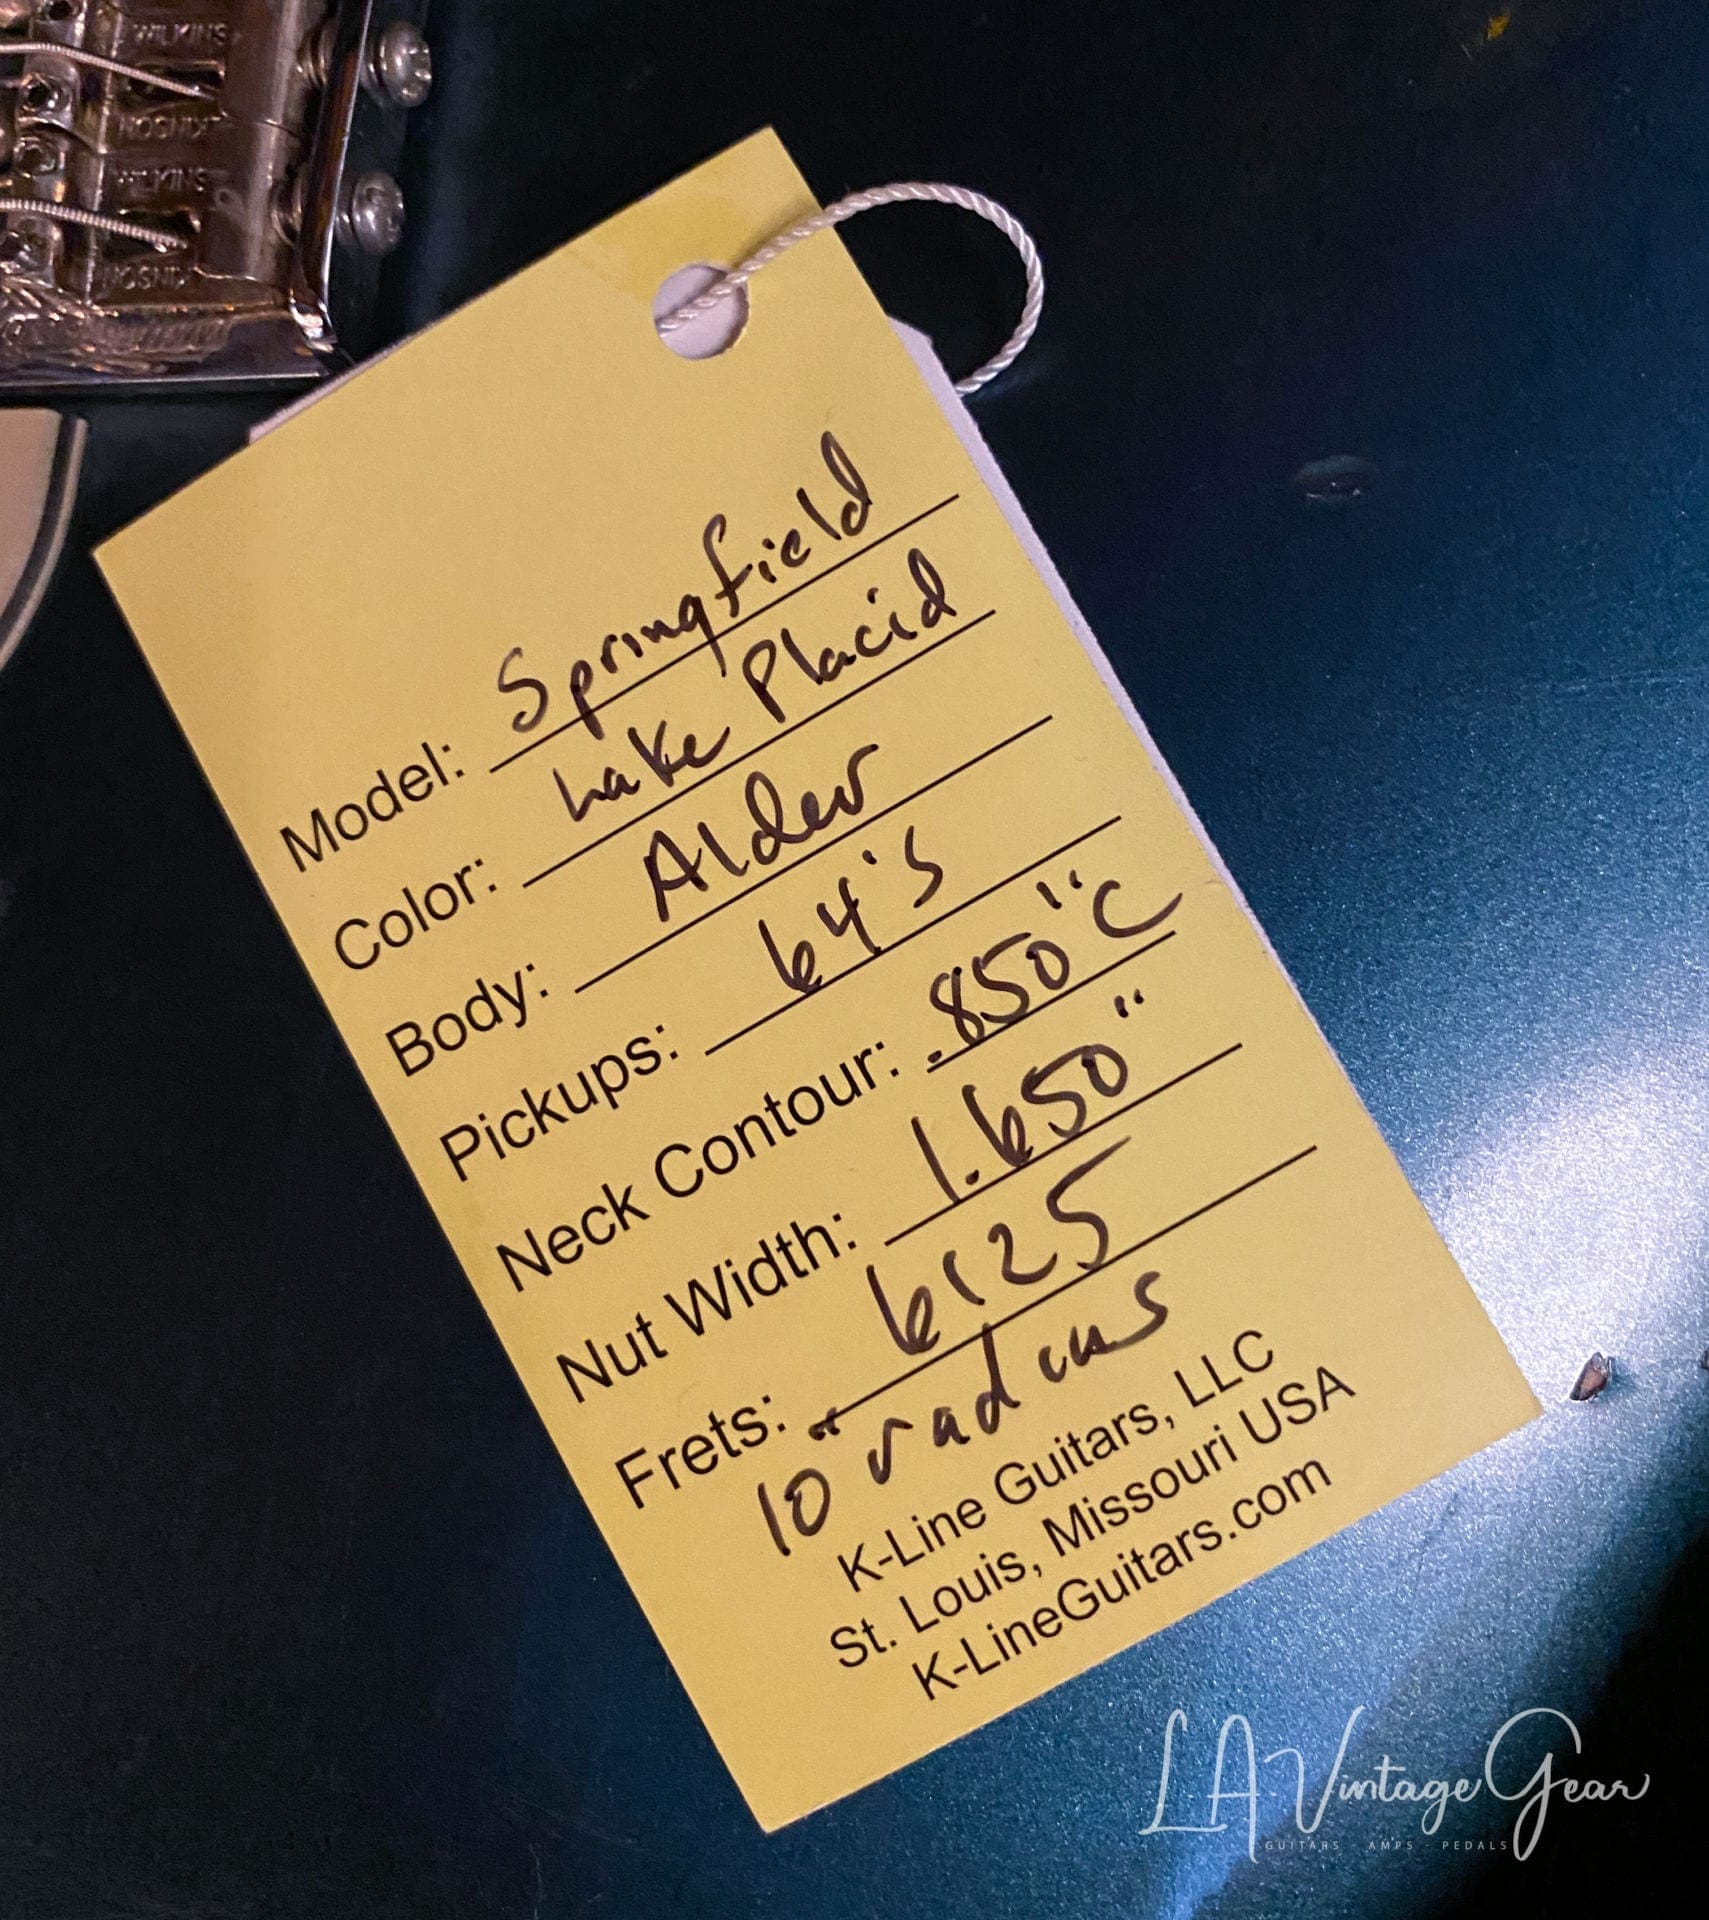 WILKINS
KINSON
WILKINS
KINSON
Model: Springfield
Color: Lake Placid
Body: Alder
Pickups: 64's
Neck Contour: .850" C
Nut Width: 1.650"
Frets: 6125
10" radius
K-Line Guitars, LLC
St. Louis, Missouri USA
K-LineGuitars.com
LA Vintage Gear
GUITARS - AMPS - PEDALS